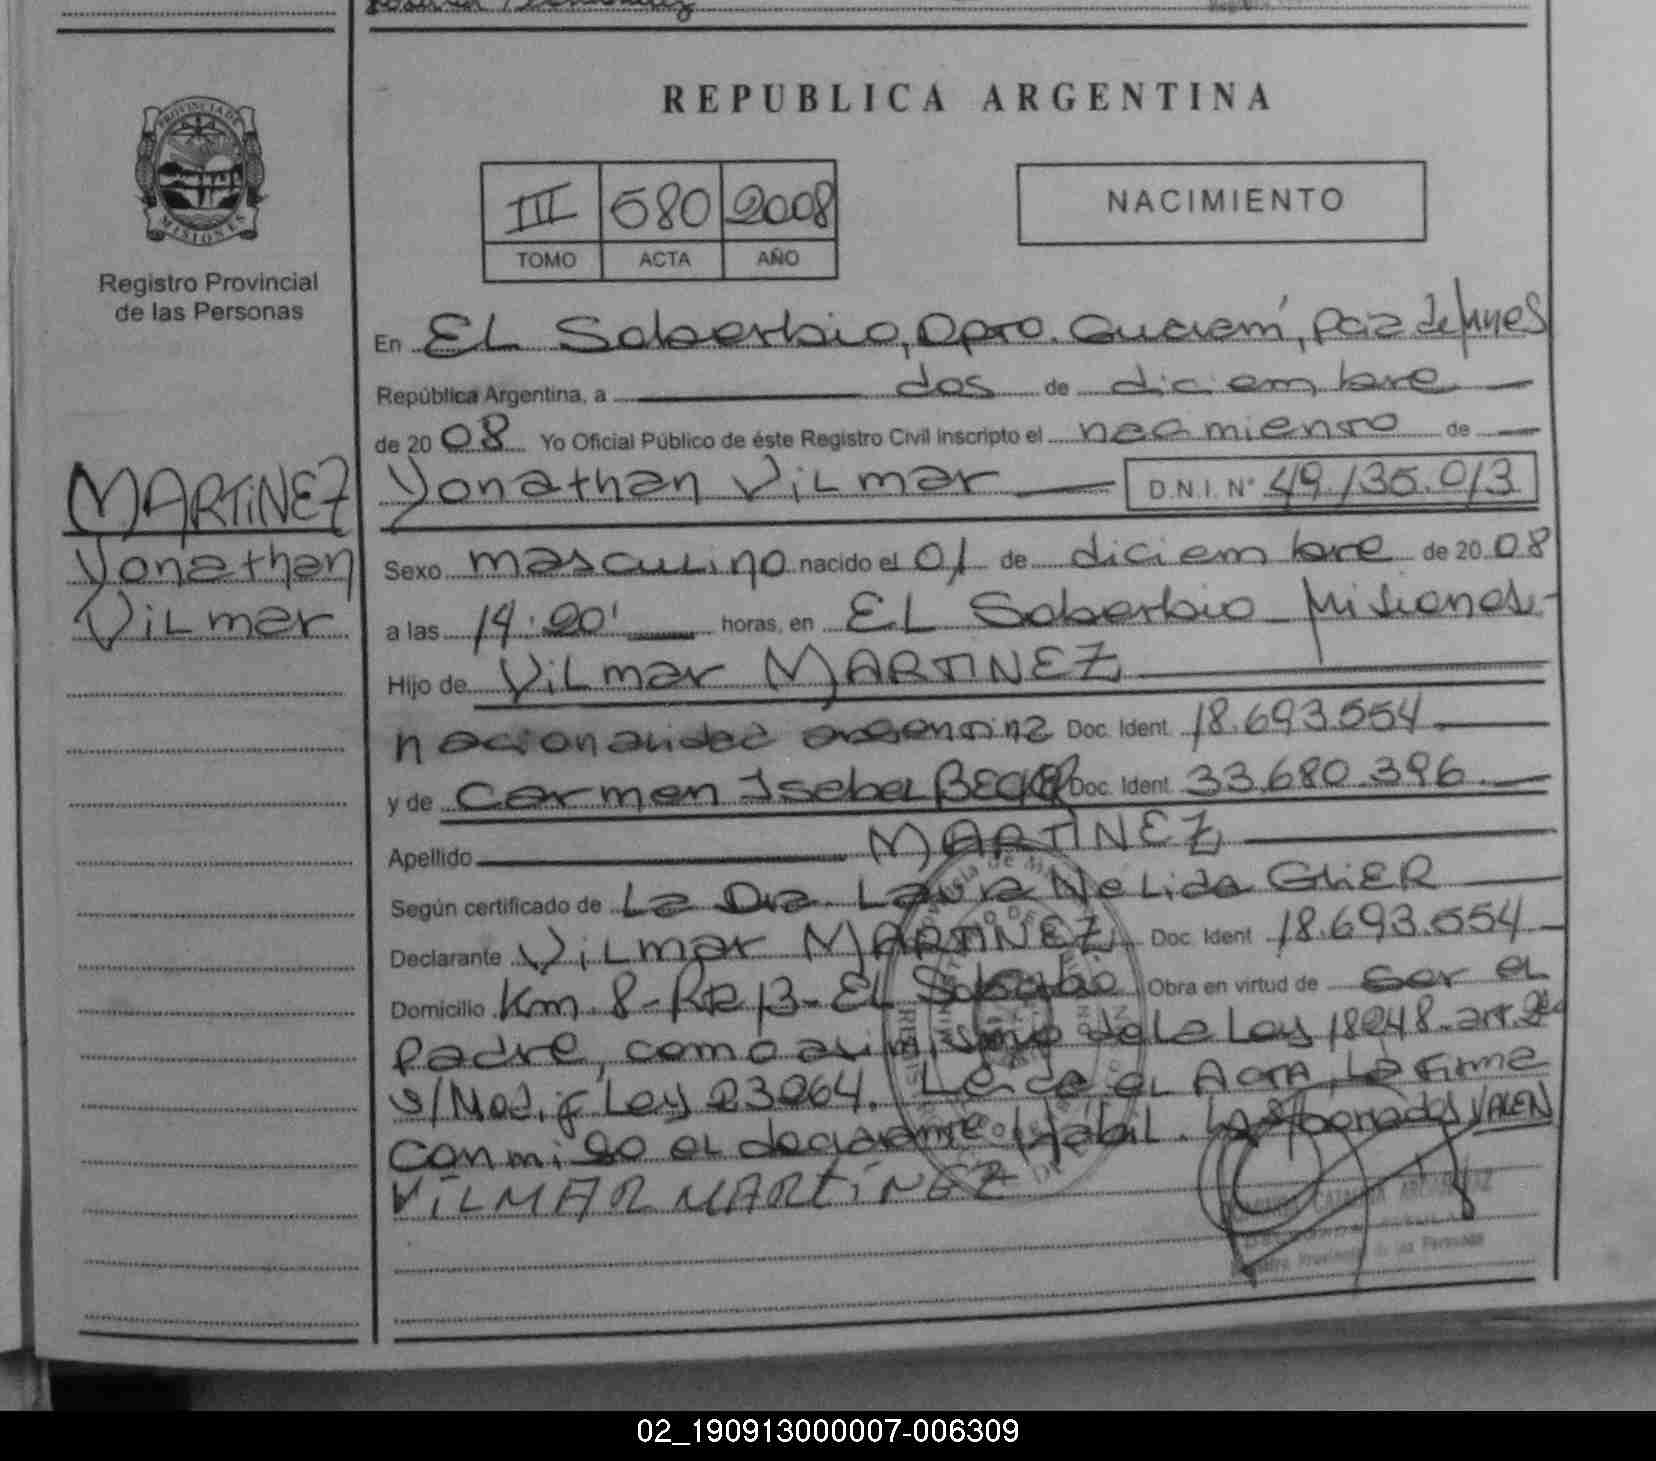 PROVINCIA DE
MISIONES
Registro Provincial
de las Personas
MARTiNEZ
Yonathan
ViLmar
REPUBLICA ARGENTINA
III 580 2008
TOMO ACTA AÑO
NACIMIENTO
En EL Soberbio, Dpto. Guaraní,
República Argentina, a dos de diciembre
de 20 08 Yo Oficial Público de éste Registro Civil inscripto el nacimiento de
Yonathan ViLmar D.N.I. N° 49.135.013
Sexo masculino nacido el 01 de diciembre de 20 08
a las 14:20' horas, en EL Soberbio Misiones.-
Hijo de ViLmar MARTINEZ
nacionalidad argentina Doc. Ident. 18.693.554
y de Carmen Isabel Doc. Ident. 33.680.396
Apellido MARTINEZ
Según certificado de La Dra. Laura NeLida GLiER
Declarante ViLmar MARTINEZ Doc. Ident 18.693.554
Domicilio Km. 8- 13- EL Soberbio Obra en virtud de ser el
Padre, como asimismo de La Ley 18248- art. 2do
s/Modif Ley 23264. Leida el ACTA, La firma
conmigo el declarante Habil. VALEN
ViLMAR MARTiNEZ
Registro Provincial de las Personas
02_190913000007-006309